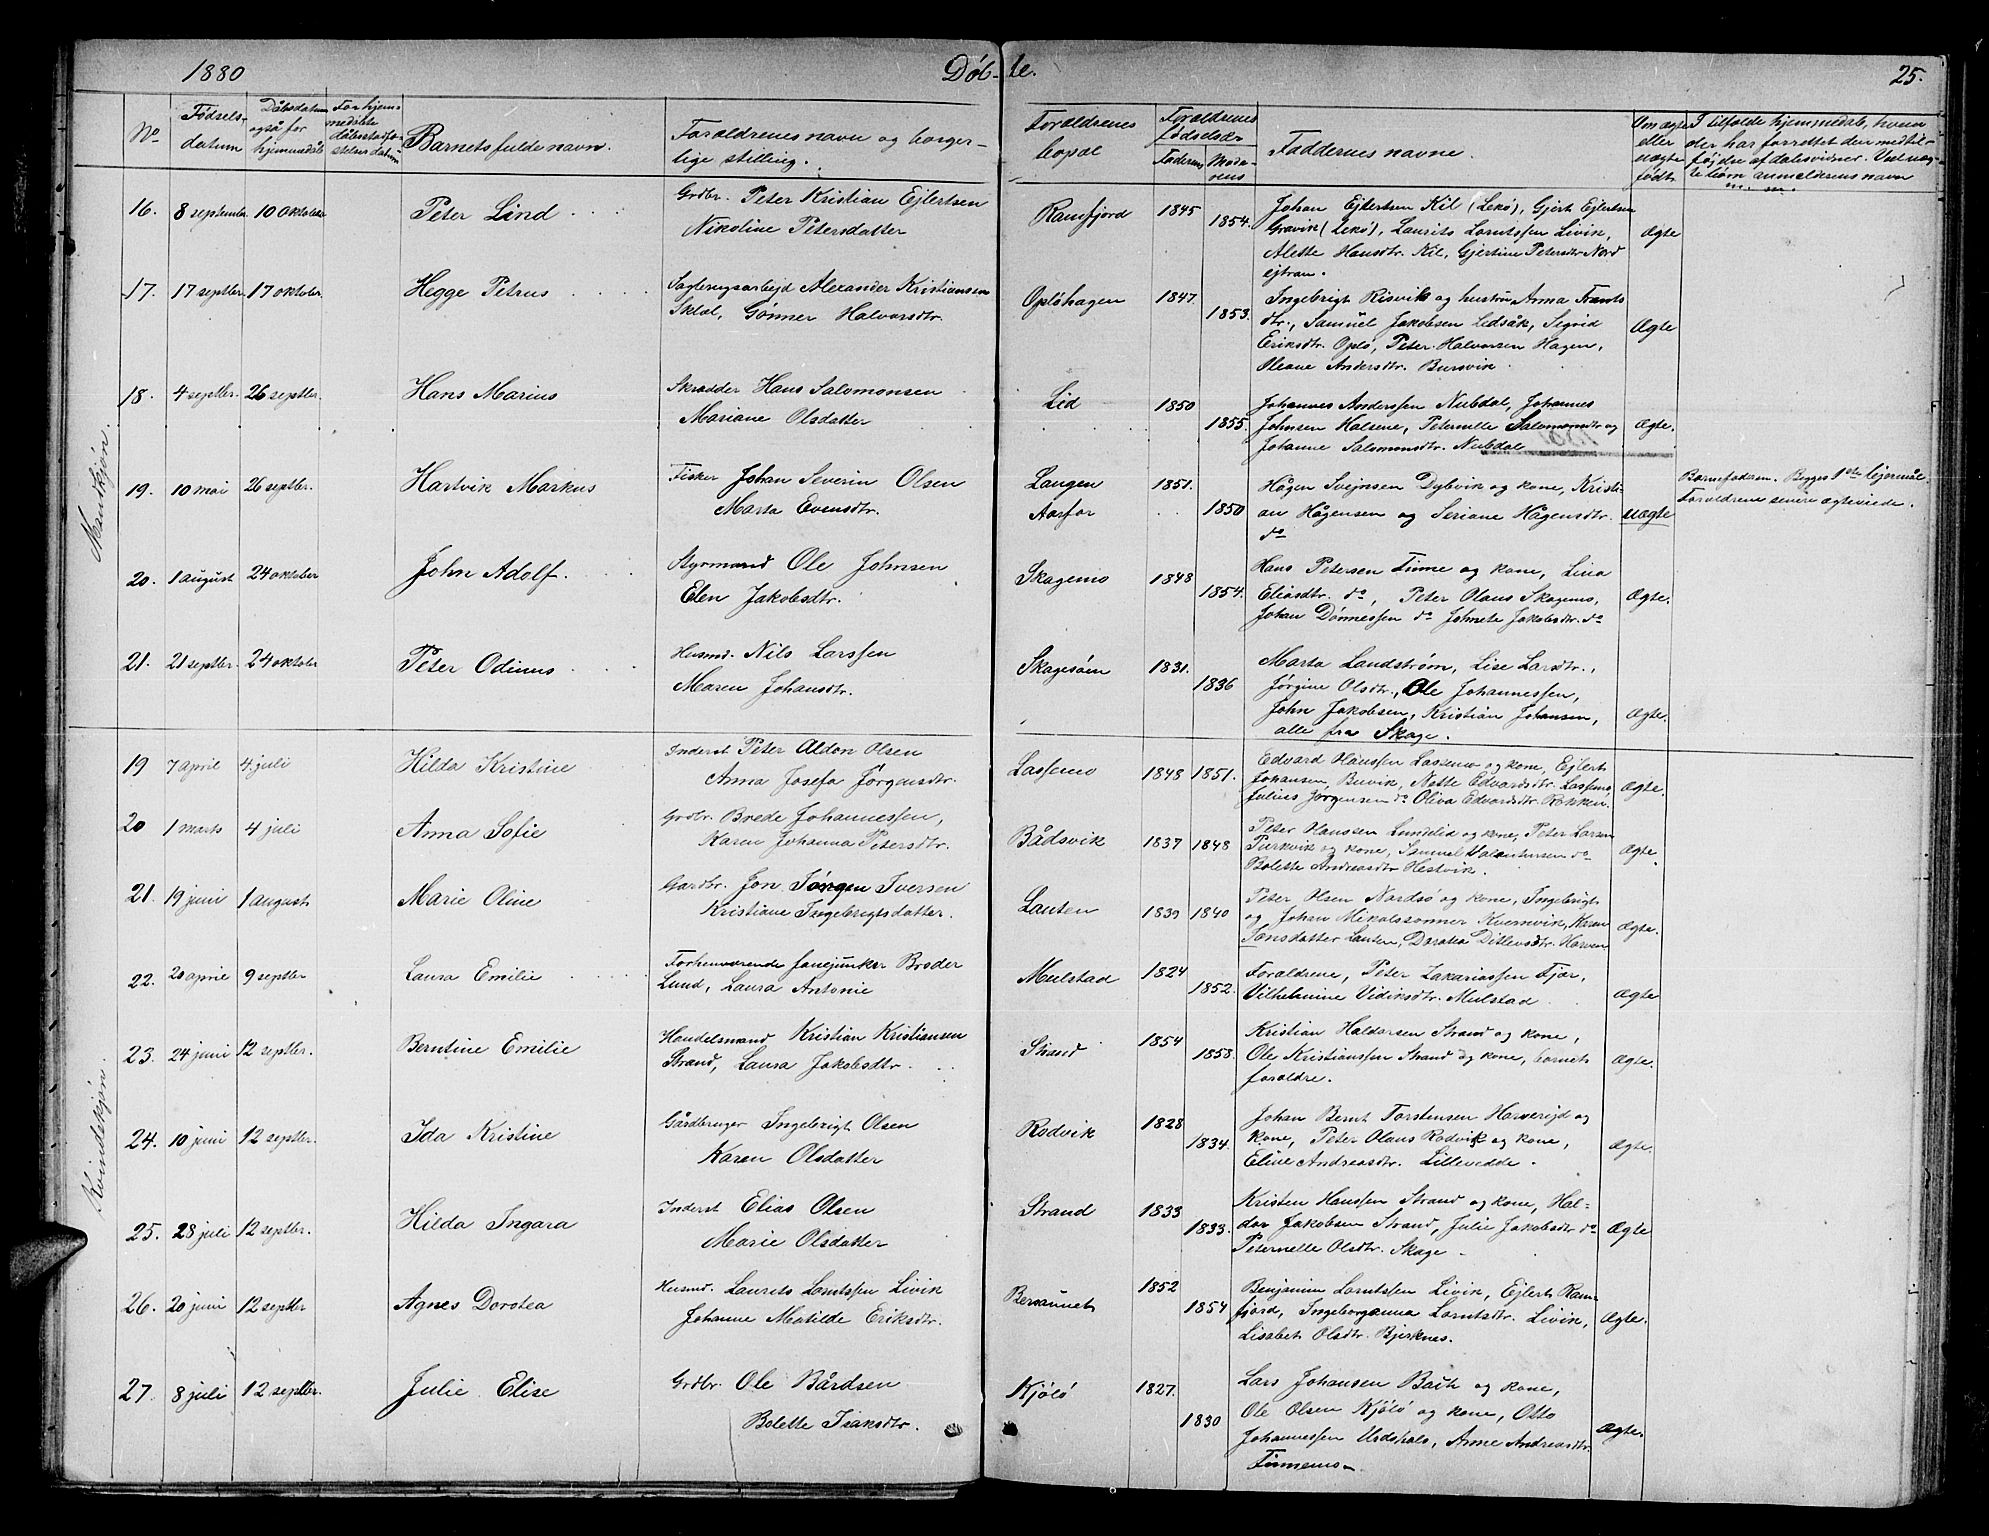 1880
Døb-te.
25.
No
Fødsels-
datum
Dåbsdatum
også for
hjemmedåb
For hjem-
medøbte
dåbsstadfæ-
stelses datum
Barnets fulde navn.
Forældrenes navn og borger-
lige stilling.
Forældrenes
bopæl
Forældrenes
fødselsår
Faderens
Mode-
rens
Faddernes navne.
Om ægte
eller
uægte
født
I tilfælde hjemmedåb, hvem
der har forrettet den med til-
føjelse af dåbsvidner. Ved uæg-
te børn anmelderens navn
m. m.
Mandkjøn.
16. 8 septembr. 10 Oktober Peter Lind Grdbr. Peter Kristian Ejlertsen
Nikoline Petersdatter
Ramfjord 1845 1854. Johan Ejlertsen Kil (Lekø), Gjert Ejlertsen
Gravik (Lekø), Laurits Lorntssen Livik,
Alette Hansdtr. Kil, Gjertine Petersdtr. Nord
Ægte
17. 17 septbr. 17 oktober. Hegge Petrus Sagbrugsarbejd Alexander Kristiansen
Gønner Halvorsdtr.
Opløhagen 1847. 1853. Ingebrigt Risvik og hustru Anna Frants
dtr., Samuel Jakobsen Sigrid
Eriksdtr. Oplø, Peter Halvorsen Hagen,
Oleane Andersdtr. Bursvik.
Ægte
18. 4 septbr. 26 septbr. Hans Marius Skrædder Hans Salomonsen
Mariane Olsdatter
Lid 1850 1855. Johannes Anderssen Nubdal, Johannes
Johnsen Halsene, Peternelle Salomonsdtr og
Johanne Salomonsdtr. Nubdal
Ægte.
19. 10 mai 26 septbr. Hartvik Markus Fisker Johan Severin Olsen
Marta Evensdtr.
Langen
Aarfor
1851. 1850 Hågen Svejnsen Dybvik og kone, Kristi-
an Hågensen og Seriane Hågensdtr.
do
uægte
Barnefaderen. Begges 1ste lejermål
Forældrene senere ægteviede.
20. 1 august 24 oktober John Adolf. Styrmand Ole Johnsen
Elen Jakobsdtr.
Skagemo 1848 1854. Hans Petersen Finne og kone, Lina
Eliasdtr. do, Peter Olaus Skagemo,
Johan Dønnessen do Johnete Jakobsdtr. do
Ægte.
21. 21 septbr. 24 oktober Peter Odinus Husmd. Nils Larssen
Maren Johansdtr.
Skagesøm 1831. 1836 Marta Landstrøm, Lise Larsdtr.,
Jørgine Olsdtr., Ole Johannessen,
John Jakobsen, Kristian Johansen,
alle fra Skage.
Ægte.
Kvindekjøn.
19 7 april 4 juli Hilda Kristine Inderst Peter Aldon Olsen
Anna Josefa Jørgensdtr.
Lassemo 1848 1851. Edvard Hanssen Lassemo og kone, Ejlert
Johansen, Buvik, Nette Edvardsdtr. Lassemo
Julius Jørgensen do Oliva Edvardsdtr. Rokken
Ægte.
20 1 marts 4 juli Anna Sofie Grdbr. Brede Johannessen,
Karen Johanna Petersdtr.
Bådsvik 1837 1848 Peter Hanssen Lundelid og kone, Peter Larsen
Purkvik og kone, Samuel do
Bolette Andreasdtr Hestvik.
Ægte
21. 19 juni 1 august Marie Oline Gardbr. Jon Jørgen Iversen
Kristiane Ingebrigtsdatter.
Lauten 1839 1840 Peter Olsen Nordsø og kone, Ingebrigt
og Johan Mikalssønner Kvernvik, Karen
Jonsdatter Lauten, Dorotea Ditlevsdtr. Horsen
Ægte.
22. 20 april 9 septbr Laura Emilie Forhenværende fanejunker Broder
Lund, Laura Antonie
Mulstad 1824 1852. Forældrene, Peter Zakariassen Fjær,
Vilhelmine Vidiksdtr. Mulstad
Ægte
23. 24 juni 12 septbr. Berntine Emilie Handelsmand Kristian Kristiansen
Strand, Laura Jakobsdtr.
Strand 1854 1858. Kristian Haldorsen Strand og kone,
Ole Kristianssen Strand og kone, barnets
forældre.
Ægte.
24. 10 juni 12 septbr. Ida Kristine Gårdbruger Ingebrigt Olsen
Karen Olsdatter
Rodvik 1828 1834. Johan Bernt Torstensen Harverejd og
kone, Peter Olaus Rodvik og kone,
Eline Andreasdtr. Lillevedde.
Ægte.
25. 28 juli 12 septbr. Hilda Ingara Inderst Elias Olsen
Marie Olsdatter
Strand 1833 1833. Kristen Hanssen Strand og kone, Hal-
dor Jakobsen Strand, Julie Jakobsdtr do
Peternelle Olsdtr. Skage.
Ægte
26. 20 juni 12 septbr Agnes Dorotea Husmd. Laurits Lorntssen Livik
Johanne Matilde Eriksdtr.
1852 1854 Benjamin Lorntssen Livik, Ejlert Ram-
fjord, Ingeborganna Lorntsdtr. Livik,
Lisabet Olsdtr. Bjerknes.
Ægte.
27. 8 juli 12 septbr. Julie Elise Grdbr. Ole Bårdsen
Bolette Isaksdtr.
Kjølø 1827. 1830 Lars Johansen Bach og kone,
Ole Olsen Kjølø og kone, Otto
Johannessen Anne Andreasdtr.
Finnemo.
Ægte.